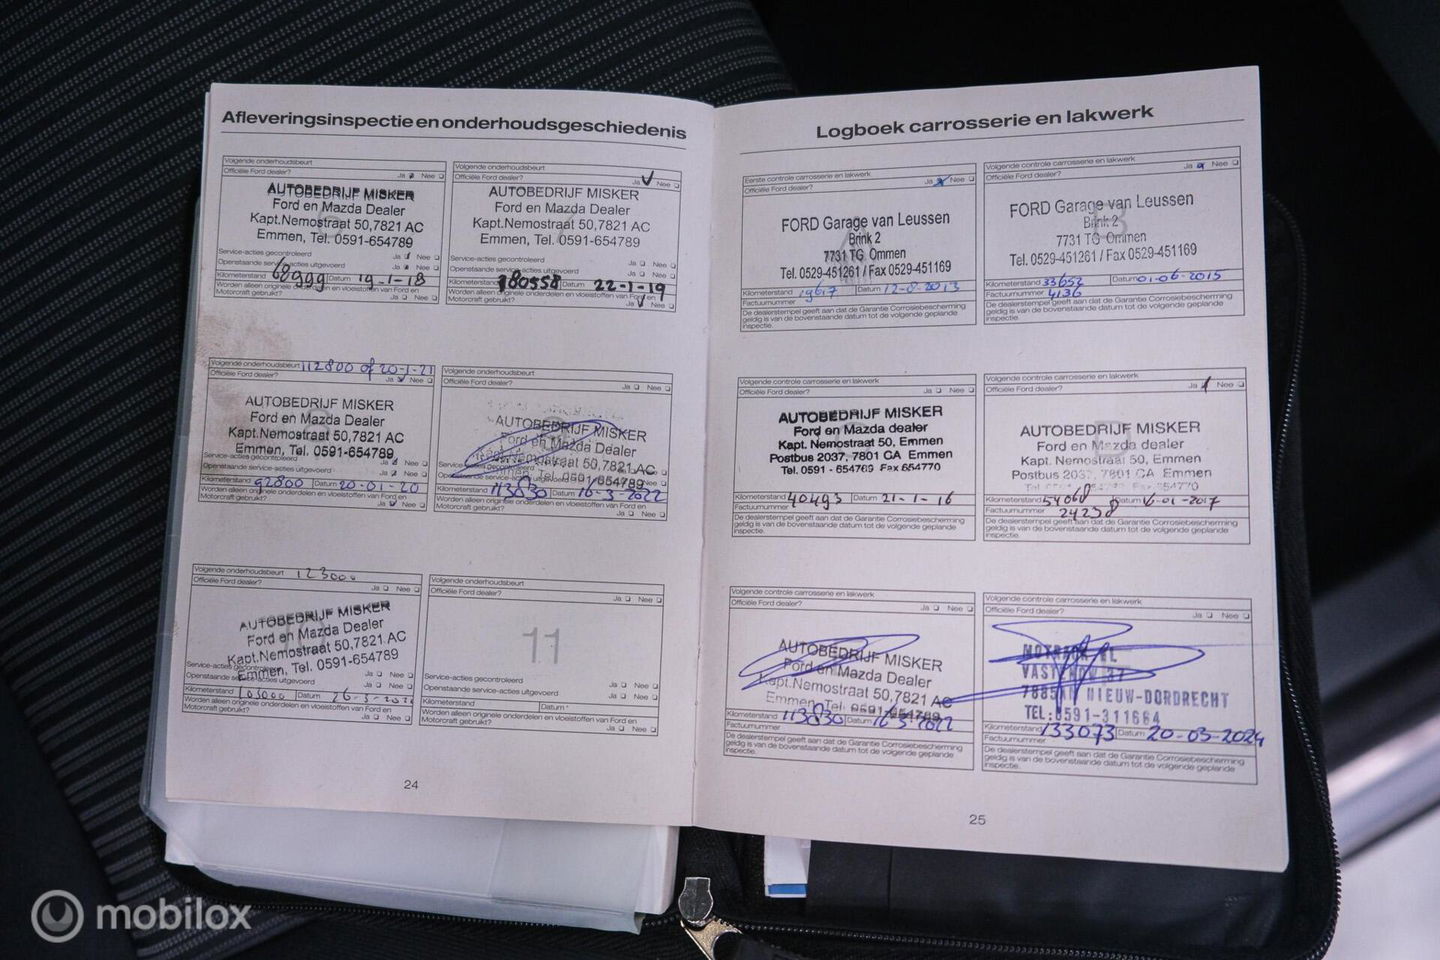 Afleveringsinspectie en onderhoudsgeschiedenis
Volgende onderhoudsbeurt
Officiële Ford dealer? Ja Nee
AUTOBEDRIJF MISKER
Ford en Mazda Dealer
Kapt.Nemostraat 50,7821 AC
Emmen, Tel. 0591-654789
Service-acties gecontroleerd
Openstaande service-acties uitgevoerd
Kilometerstand 68999 Datum 19-1-18
Worden alleen originele onderdelen en vloeistoffen van Ford en
Motorcraft gebruikt? Ja Nee
Volgende onderhoudsbeurt
Officiële Ford dealer? Ja Nee
AUTOBEDRIJF MISKER
Ford en Mazda Dealer
Kapt.Nemostraat 50,7821 AC
Emmen, Tel. 0591-654789
Service-acties gecontroleerd Ja Nee
Openstaande service-acties uitgevoerd Ja Nee
Kilometerstand 80558 Datum 22-1-19
Worden alleen originele onderdelen en vloeistoffen van Ford en
Motorcraft gebruikt? Ja Nee
Volgende onderhoudsbeurt 112800 of 20-1-21
Officiële Ford dealer? Ja Nee
8
AUTOBEDRIJF MISKER
Ford en Mazda Dealer
Kapt.Nemostraat 50,7821 AC
Emmen, Tel. 0591-654789
Service-acties gecontroleerd Ja Nee
Openstaande service-acties uitgevoerd Ja Nee
Kilometerstand 92800 Datum 20-01-20
Worden alleen originele onderdelen en vloeistoffen van Ford en
Motorcraft gebruikt? Ja Nee
Volgende onderhoudsbeurt
Officiële Ford dealer? Ja Nee
AUTOBEDRIJF MISKER
Ford en Mazda Dealer
Kapt.Nemostraat 50,7821 AC
Emmen, Tel. 0591-654789
Kilometerstand 113830 Datum 16-3-2022
Worden alleen originele onderdelen en vloeistoffen van Ford en
Motorcraft gebruikt? Ja Nee
Volgende onderhoudsbeurt 123000
Officiële Ford dealer? Ja Nee
AUTOBEDRIJF MISKER
Ford en Mazda Dealer
Kapt.Nemostraat 50,7821 AC
Emmen, Tel. 0591-654789
Service-acties gecontroleerd Ja Nee
Openstaande service-acties uitgevoerd Ja Nee
Kilometerstand 103000 Datum
Worden alleen originele onderdelen en vloeistoffen van Ford en
Motorcraft gebruikt? Ja Nee
Volgende onderhoudsbeurt
Officiële Ford dealer? Ja Nee
11
Service-acties gecontroleerd Ja Nee
Openstaande service-acties uitgevoerd Ja Nee
Kilometerstand Datum
Worden alleen originele onderdelen en vloeistoffen van Ford en
Motorcraft gebruikt? Ja Nee
24
Logboek carrosserie en lakwerk
Eerste controle carrosserie en lakwerk
Officiële Ford dealer? Ja Nee
FORD Garage van Leussen
Brink 2
7731 TG Ommen
Tel. 0529-451261 / Fax 0529-451169
Kilometerstand 19617 Datum 12-8-2013
Factuurnummer
De dealerstempel geeft aan dat de Garantie Corrosiebescherming
geldig is van de bovenstaande datum tot de volgende geplande
inspectie.
Volgende controle carrosserie en lakwerk
Officiële Ford dealer? Ja Nee
FORD Garage van Leussen
Brink 2
7731 TG Ommen
Tel. 0529-451261 / Fax 0529-451169
Kilometerstand 33652 Datum 01-06-2015
Factuurnummer 4136
De dealerstempel geeft aan dat de Garantie Corrosiebescherming
geldig is van de bovenstaande datum tot de volgende geplande
inspectie.
Volgende controle carrosserie en lakwerk
Officiële Ford dealer? Ja Nee
AUTOBEDRIJF MISKER
Ford en Mazda dealer
Kapt. Nemostraat 50, Emmen
Postbus 2037, 7801 CA Emmen
Tel. 0591 - 654789 Fax 654770
Kilometerstand 40493 Datum 21-1-16
Factuurnummer
De dealerstempel geeft aan dat de Garantie Corrosiebescherming
geldig is van de bovenstaande datum tot de volgende geplande
inspectie.
Volgende controle carrosserie en lakwerk
Officiële Ford dealer? Ja Nee
AUTOBEDRIJF MISKER
Ford en Mazda dealer
Kapt. Nemostraat 50, Emmen
Postbus 2037, 7801 CA Emmen
Kilometerstand 54068 Datum 16-01-2017
Factuurnummer 24238
De dealerstempel geeft aan dat de Garantie Corrosiebescherming
geldig is van de bovenstaande datum tot de volgende geplande
inspectie.
Volgende controle carrosserie en lakwerk
Officiële Ford dealer? Ja Nee
AUTOBEDRIJF MISKER
Ford en Mazda Dealer
Kapt.Nemostraat 50,7821 AC
Emmen, Tel. 0591-654789
Kilometerstand 113830 Datum 16-3-2022
Factuurnummer
De dealerstempel geeft aan dat de Garantie Corrosiebescherming
geldig is van de bovenstaande datum tot de volgende geplande
inspectie.
Volgende controle carrosserie en lakwerk
Officiële Ford dealer? Ja Nee
NIEUW-DORDRECHT
TEL: 0591-311664
Kilometerstand 133073 Datum 20-03-2024
Factuurnummer
De dealerstempel geeft aan dat de Garantie Corrosiebescherming
geldig is van de bovenstaande datum tot de volgende geplande
inspectie.
25
mobilox